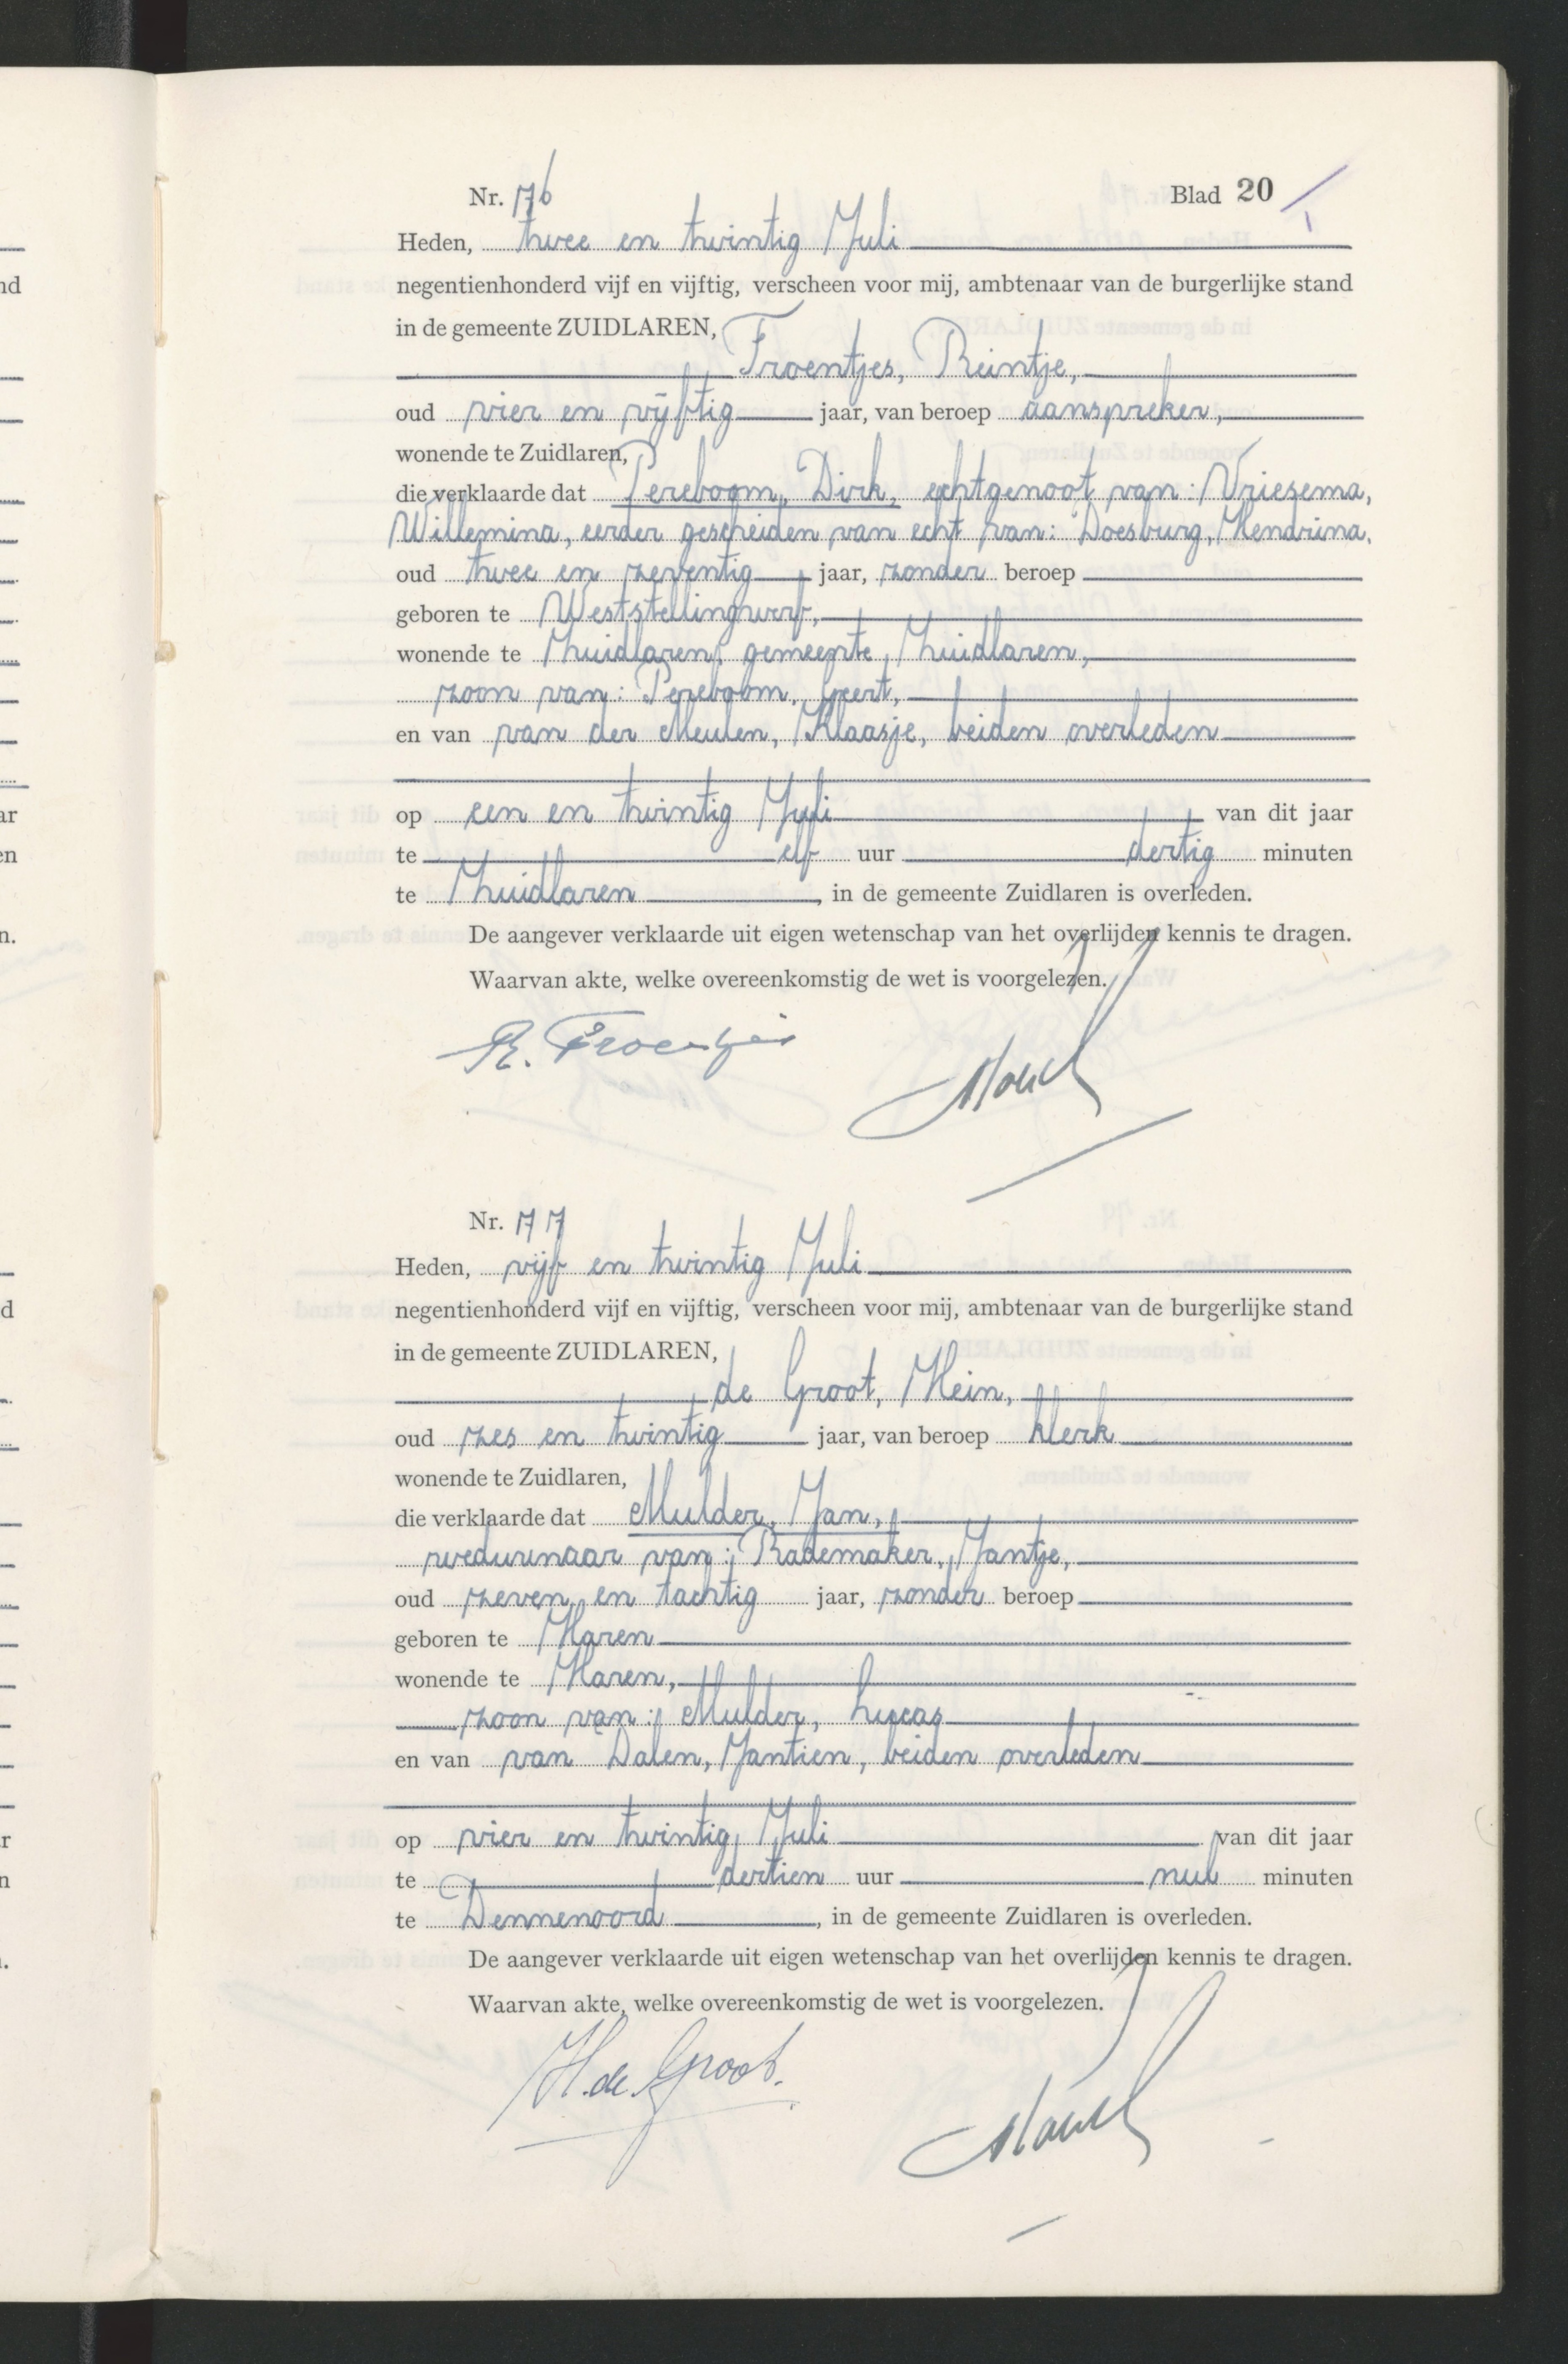 Nr. 76 Blad 20
Heden, twee en twintig Juli
negentienhonderd vijf en vijftig, verscheen voor mij, ambtenaar van de burgerlijke stand
in de gemeente ZUIDLAREN,
Froentjes, Reintje,
oud vier en vijftig jaar, van beroep aanspreker,
wonende te Zuidlaren,
die verklaarde dat Pereboom, Dirk, echtgenoot van: Vriezema,
Willemina, eerder gescheiden van echt van: Doesburg, Hendrina,
oud twee en zeventig jaar, zonder beroep
geboren te Weststellingwerf,
wonende te Zuidlaren, gemeente Zuidlaren,
zoon van: Pereboom, Geert,
en van van der Meulen, Klaasje, beiden overleden
op een en twintig Juli van dit jaar
te elf uur dertig minuten
te Zuidlaren, in de gemeente Zuidlaren is overleden.
De aangever verklaarde uit eigen wetenschap van het overlijden kennis te dragen.
Waarvan akte, welke overeenkomstig de wet is voorgelezen.
R. Froentjes
Nr. 77
Heden, vijf en twintig Juli
negentienhonderd vijf en vijftig, verscheen voor mij, ambtenaar van de burgerlijke stand
in de gemeente ZUIDLAREN,
de Groot, Hein,
oud zes en twintig jaar, van beroep klerk
wonende te Zuidlaren,
die verklaarde dat Mulder, Jan,
weduwnaar van: Rademaker, Jantje,
oud zeven en tachtig jaar, zonder beroep
geboren te Haren
wonende te Haren,
zoon van: Mulder, Lucas
en van van Dalen, Jantien, beiden overleden
op vier en twintig Juli van dit jaar
te dertien uur nul minuten
te Dennenoord, in de gemeente Zuidlaren is overleden.
De aangever verklaarde uit eigen wetenschap van het overlijden kennis te dragen.
Waarvan akte, welke overeenkomstig de wet is voorgelezen.
H. de Groot.